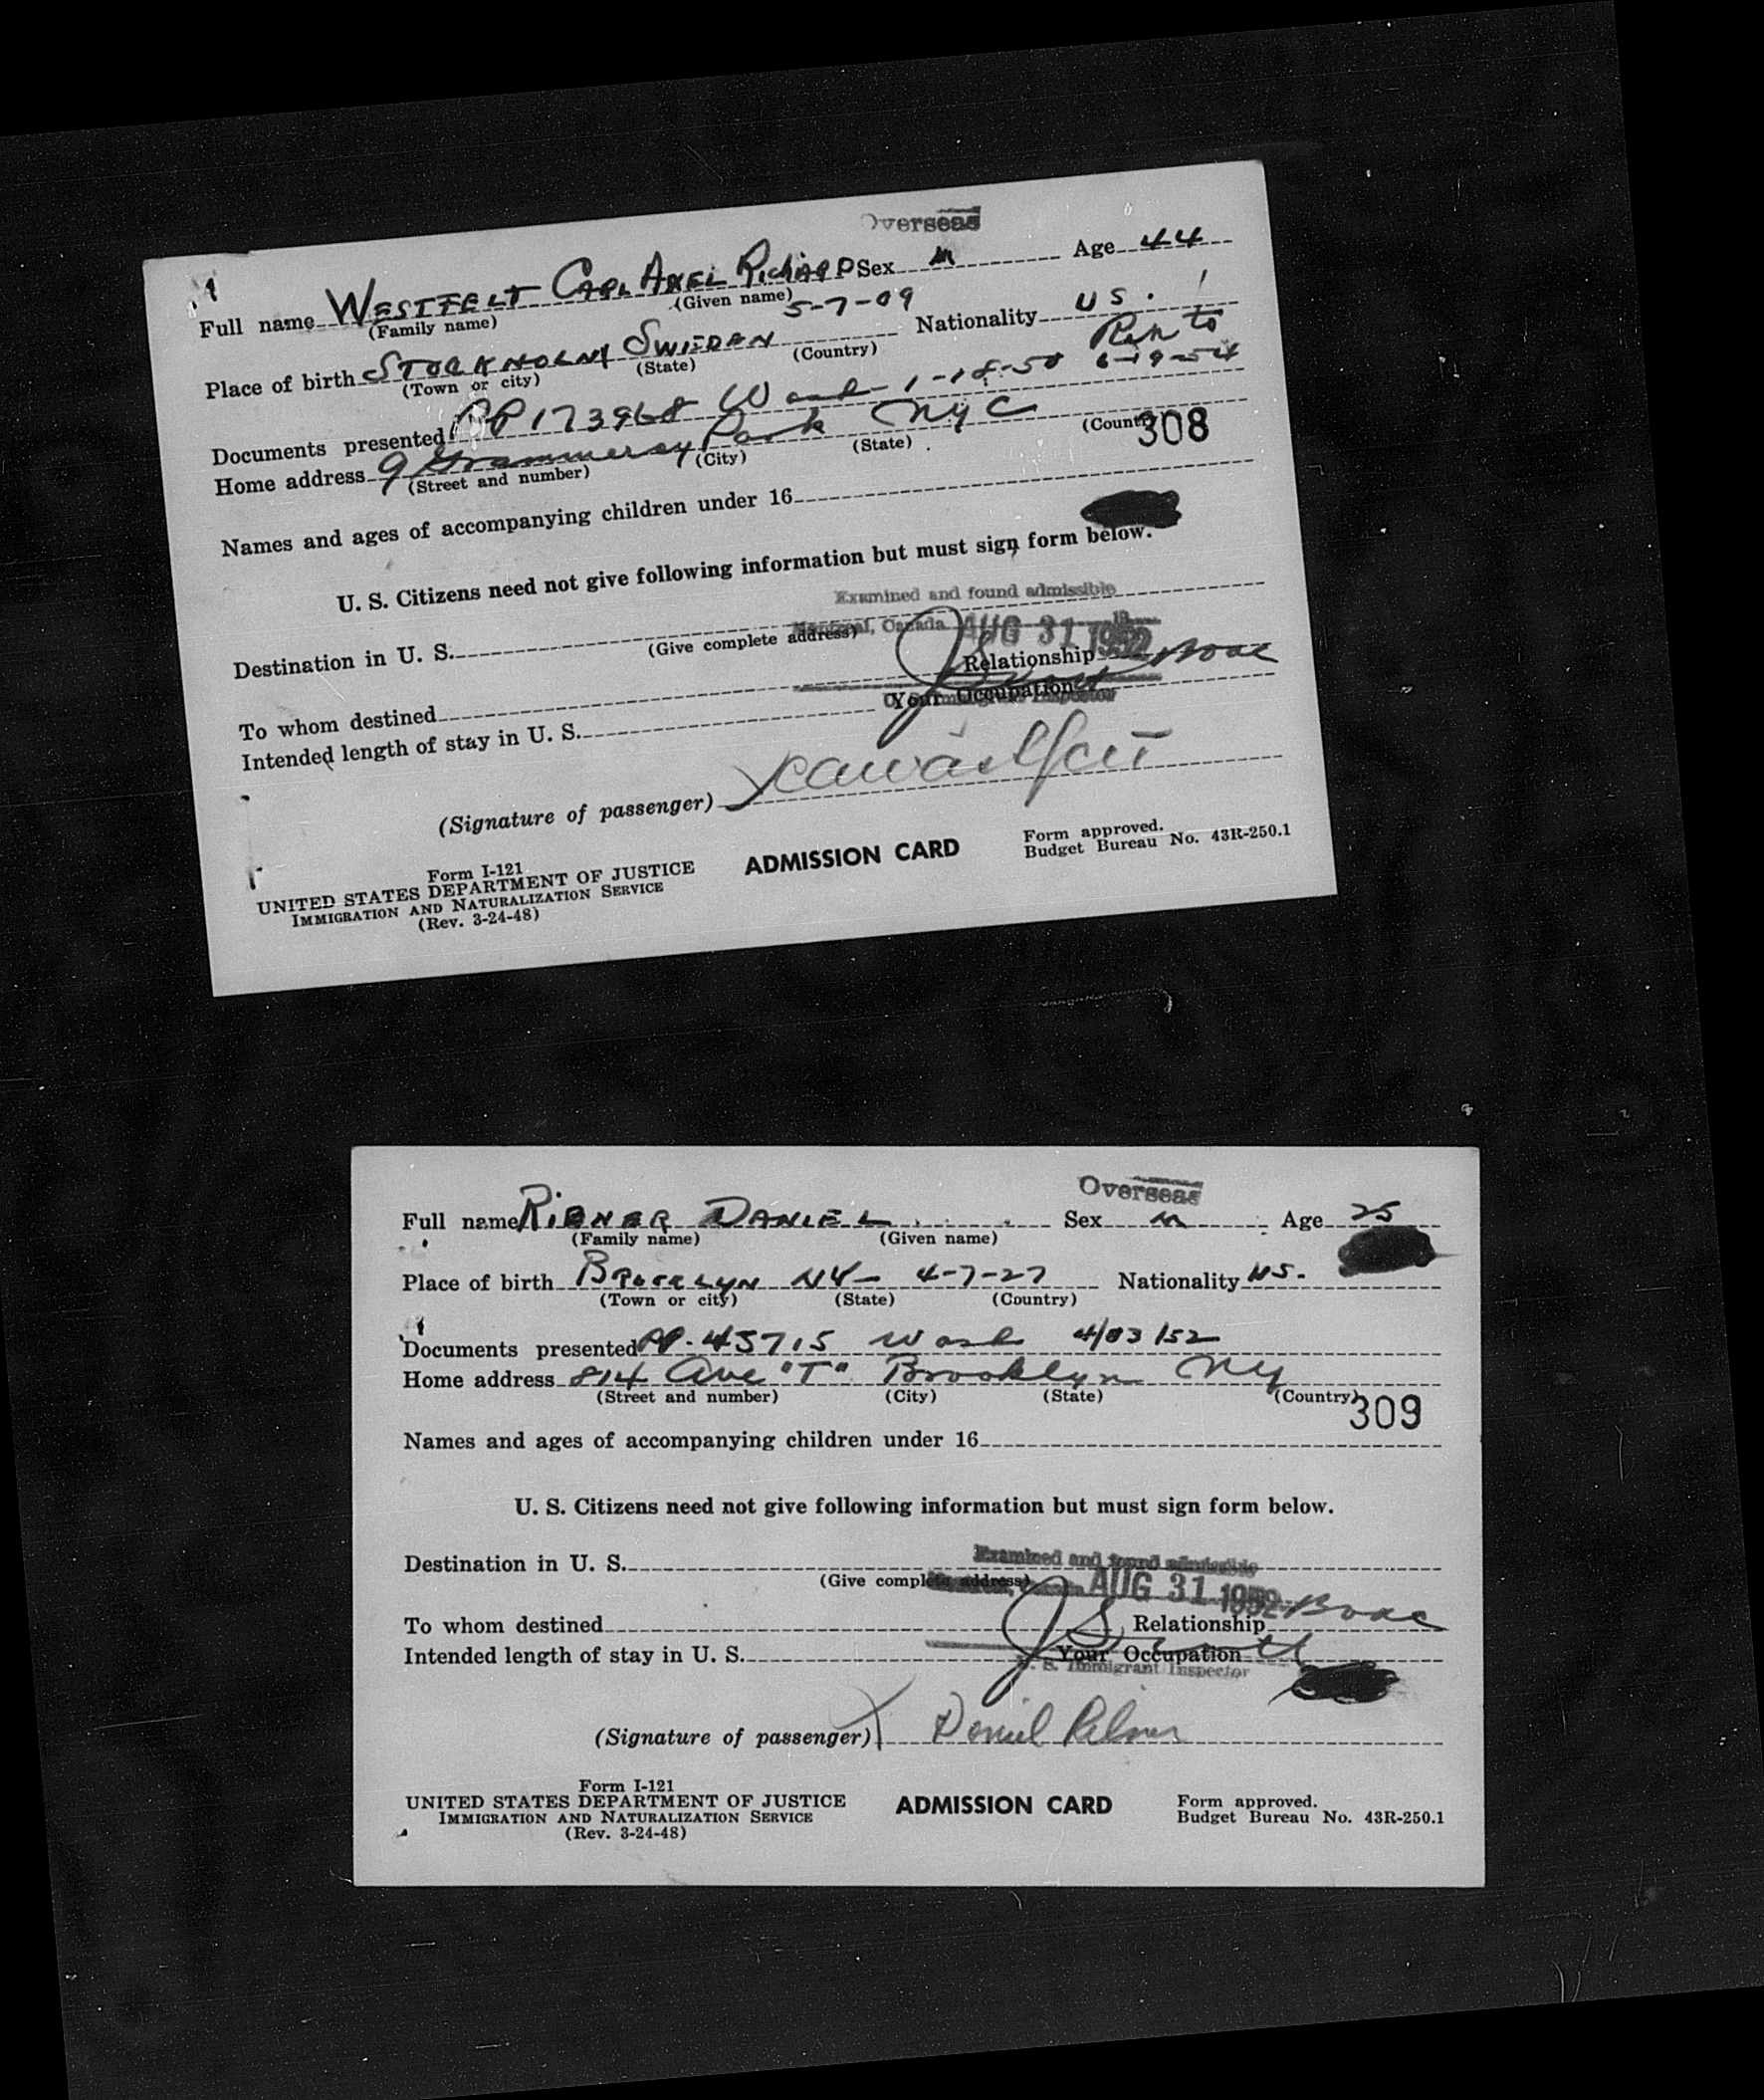 Overseas
Full name WESTFELT CARL AXEL RICHARD Sex M Age 44
(Family name) (Given name) 5-7-09
Place of birth STOCKHOLM SWEDEN Nationality US.
(Town or city) (State) (Country)
Ren to
Documents presented PP 173968 Wash 1-18-50 6-19-54
Home address 9 Grammercy Park NYC
(Street and number) (City) (State) (Country)
308
Names and ages of accompanying children under 16
U. S. Citizens need not give following information but must sign form below.
Examined and found admissible
Destination in U. S.
(Give complete address) Montreal, Canada AUG 31 1952
To whom destined Relationship BOAC
Intended length of stay in U. S. Your Occupation
U. S. Immigrant Inspector
(Signature of passenger) X
Form I-121
UNITED STATES DEPARTMENT OF JUSTICE
IMMIGRATION AND NATURALIZATION SERVICE
(Rev. 3-24-48)
ADMISSION CARD
Form approved.
Budget Bureau No. 43R-250.1
Overseas
Full name RIBNER DANIEL Sex M Age 25
(Family name) (Given name)
Place of birth BROOKLYN NY - 4-7-27 Nationality US.
(Town or city) (State) (Country)
Documents presented PP. 45715 Wash 4/03/52
Home address 814 Ave "T" Brooklyn NY
(Street and number) (City) (State) (Country)
309
Names and ages of accompanying children under 16
U. S. Citizens need not give following information but must sign form below.
Examined and found admissible
Destination in U. S.
(Give complete address) AUG 31 1952
To whom destined Relationship BOAC
Intended length of stay in U. S. Your Occupation
U. S. Immigrant Inspector
(Signature of passenger) X Daniel Ribner
Form I-121
UNITED STATES DEPARTMENT OF JUSTICE
IMMIGRATION AND NATURALIZATION SERVICE
(Rev. 3-24-48)
ADMISSION CARD
Form approved.
Budget Bureau No. 43R-250.1